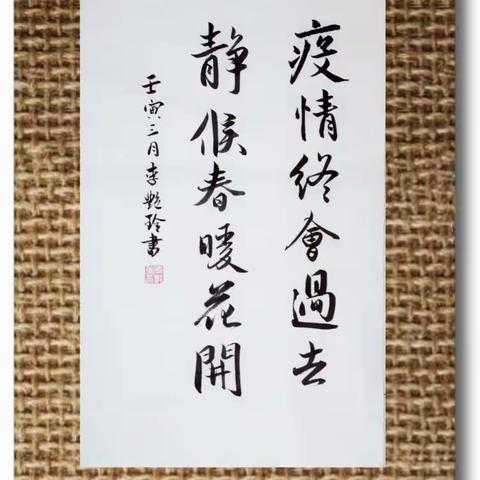 疫情终會過去
静候春暖花開
壬寅三月李艷玲書